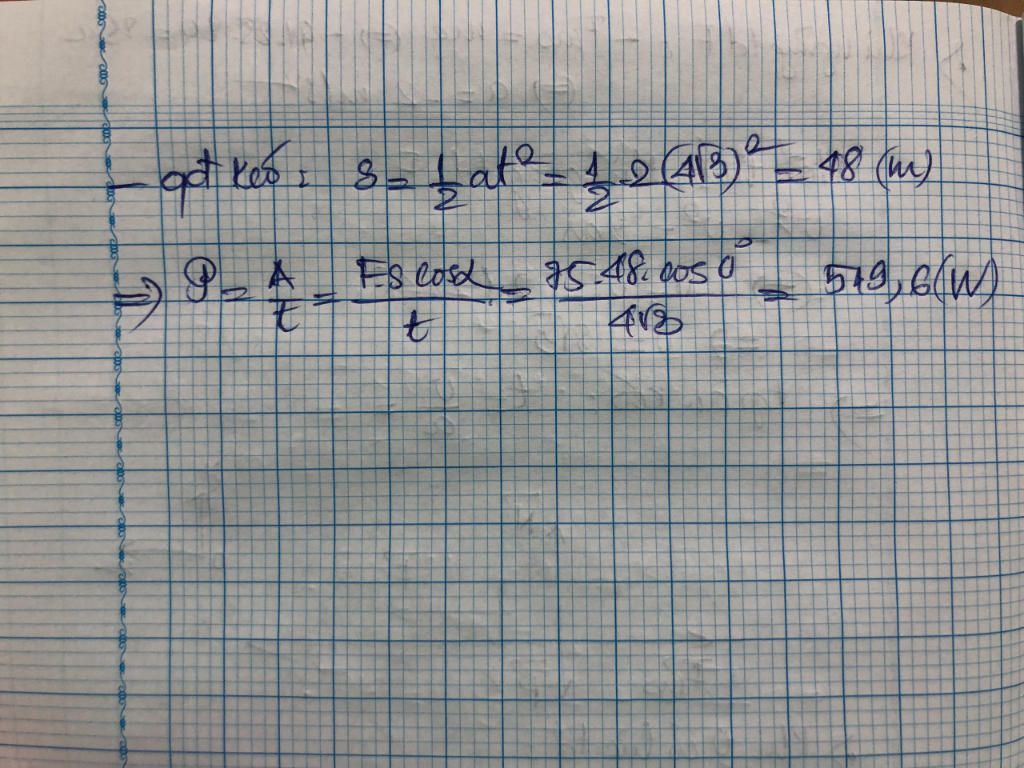 - qđt Kéo: S = 1/2 at² = 1/2 . 2 (4√3)² = 48 (m)
=> P = A/t = F.s cosα / t = 75.48.cos 0° / 4√3 = 519,6 (W)